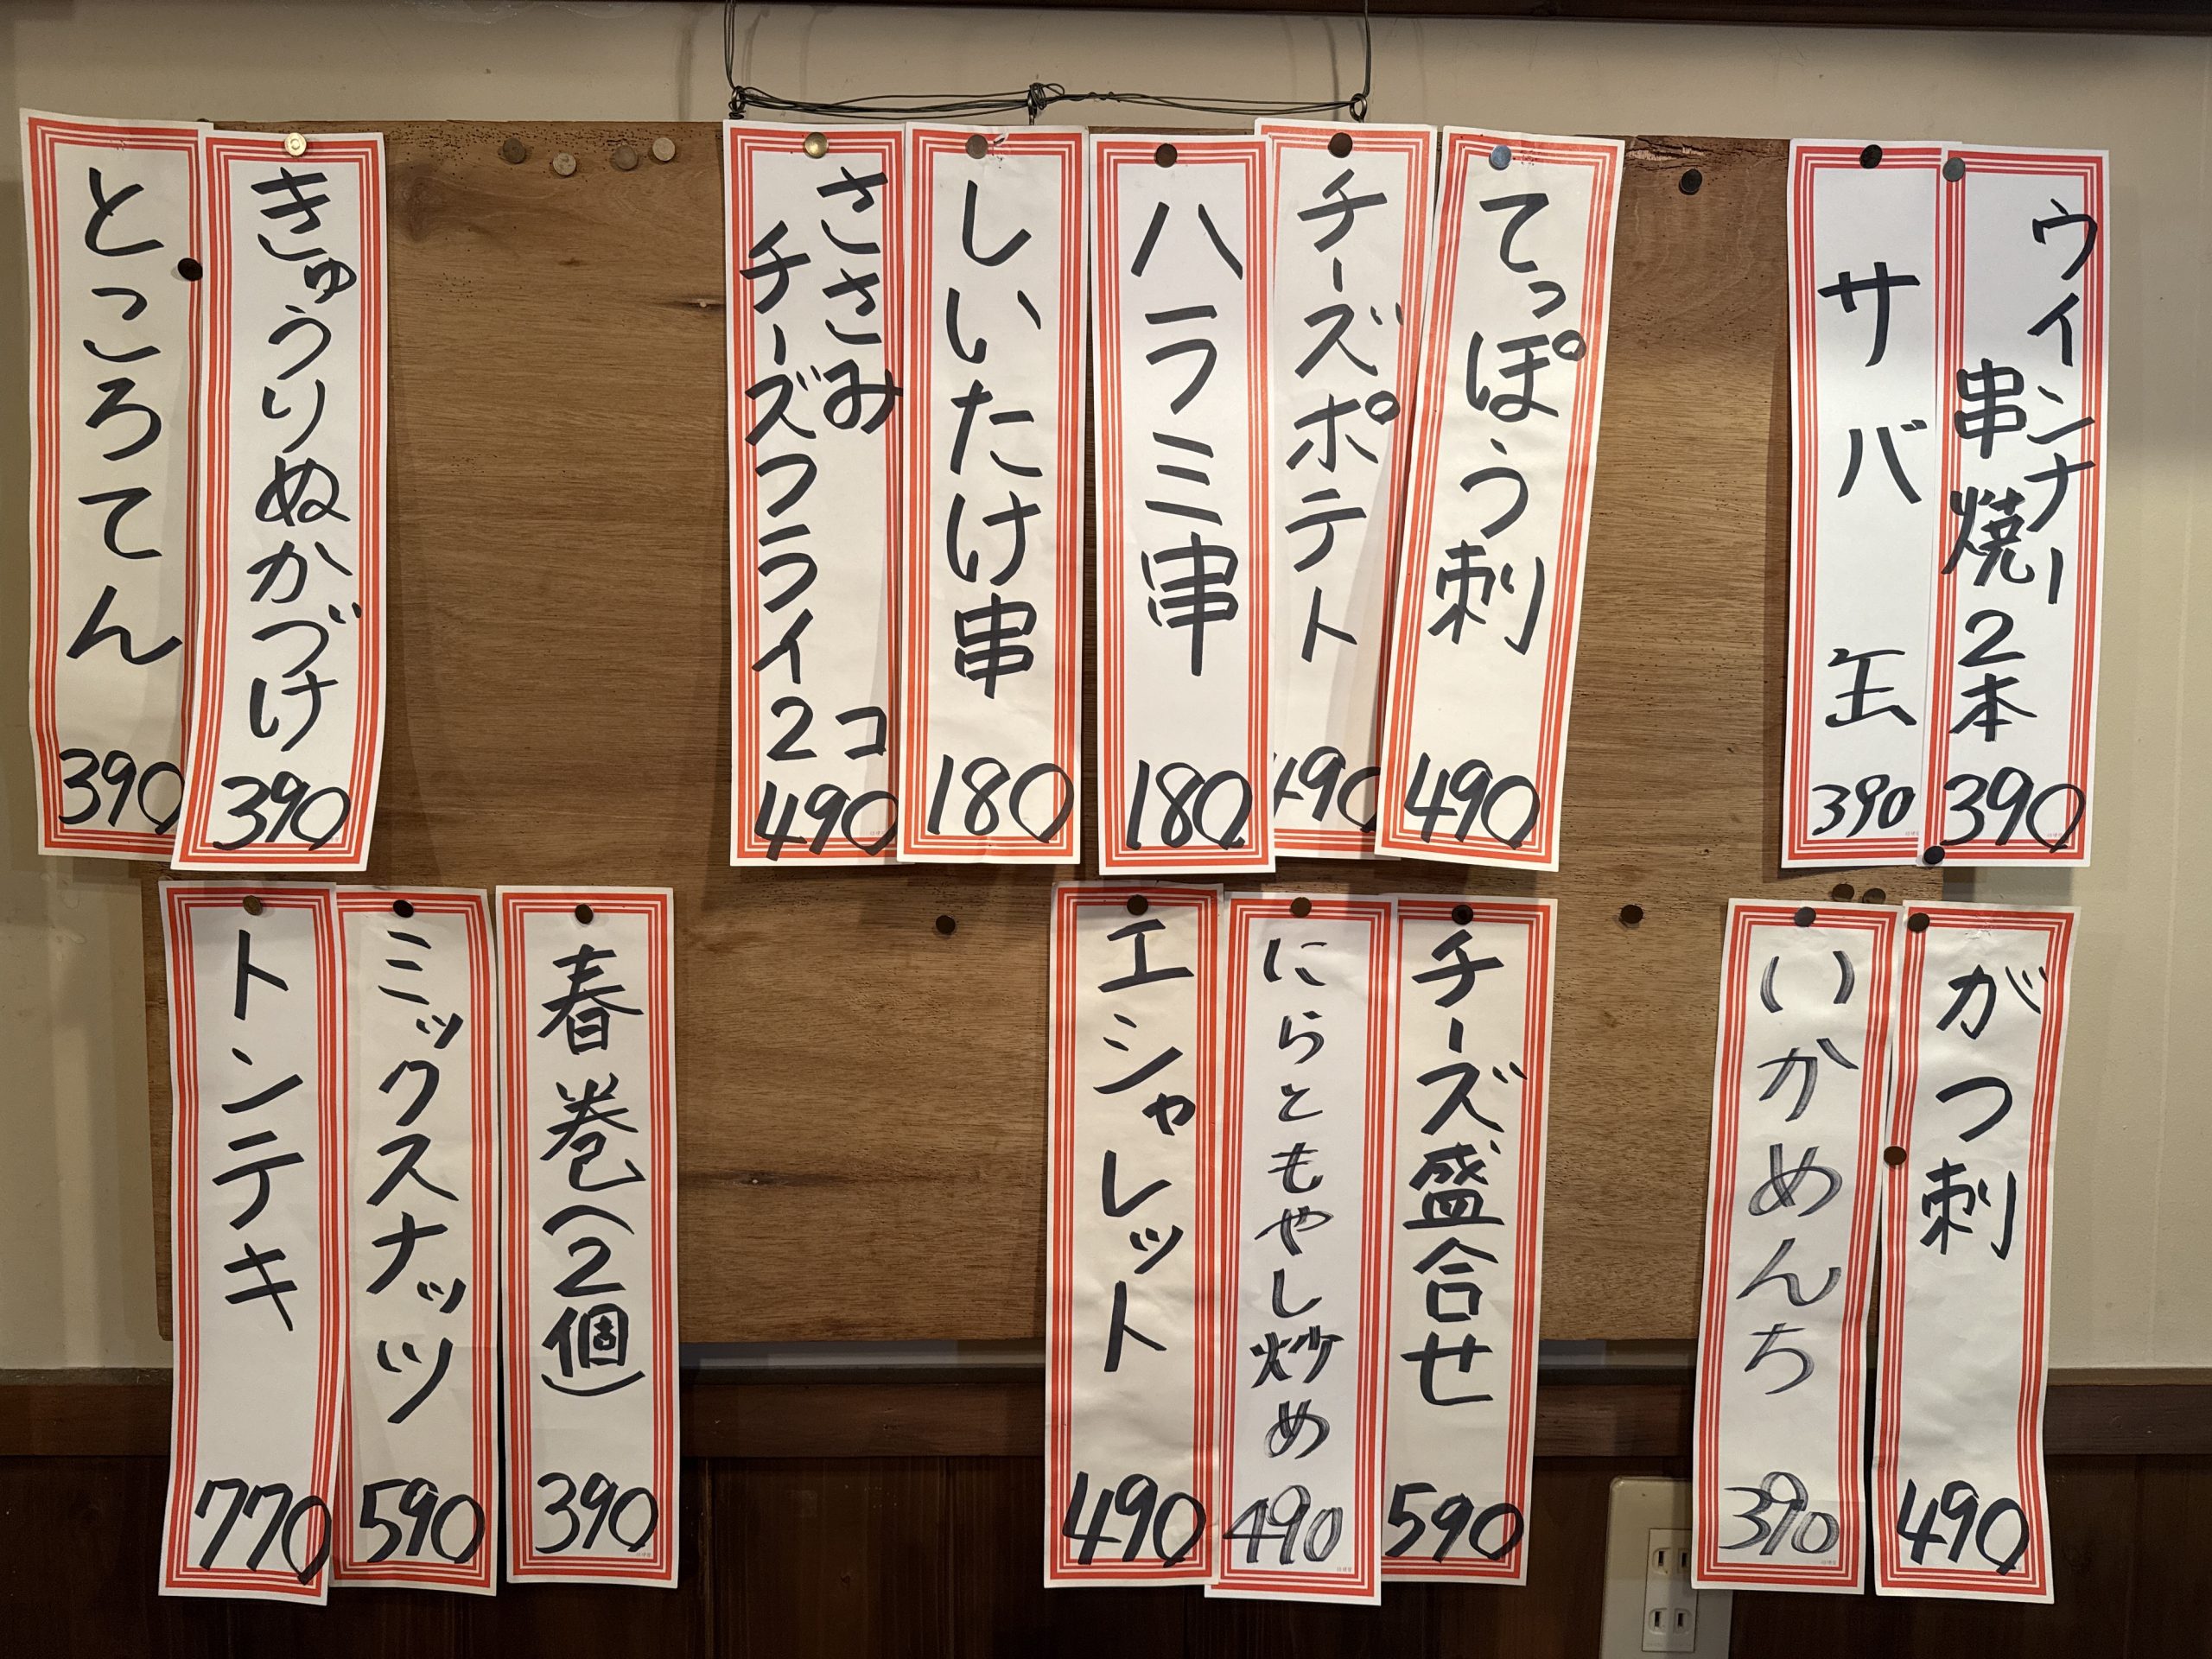 ウインナー
串焼2本
390
サバ缶
390
てっぽう刺
490
チーズポテト
490
ハラミ串
180
しいたけ串
180
ささみ
チーズフライ2コ
490
きゅうりぬかづけ
390
ところてん
390
がつ刺
490
いかめんち
390
チーズ盛合せ
590
にらともやし炒め
490
エシャレット
490
春巻(2個)
390
ミックスナッツ
590
トンテキ
770